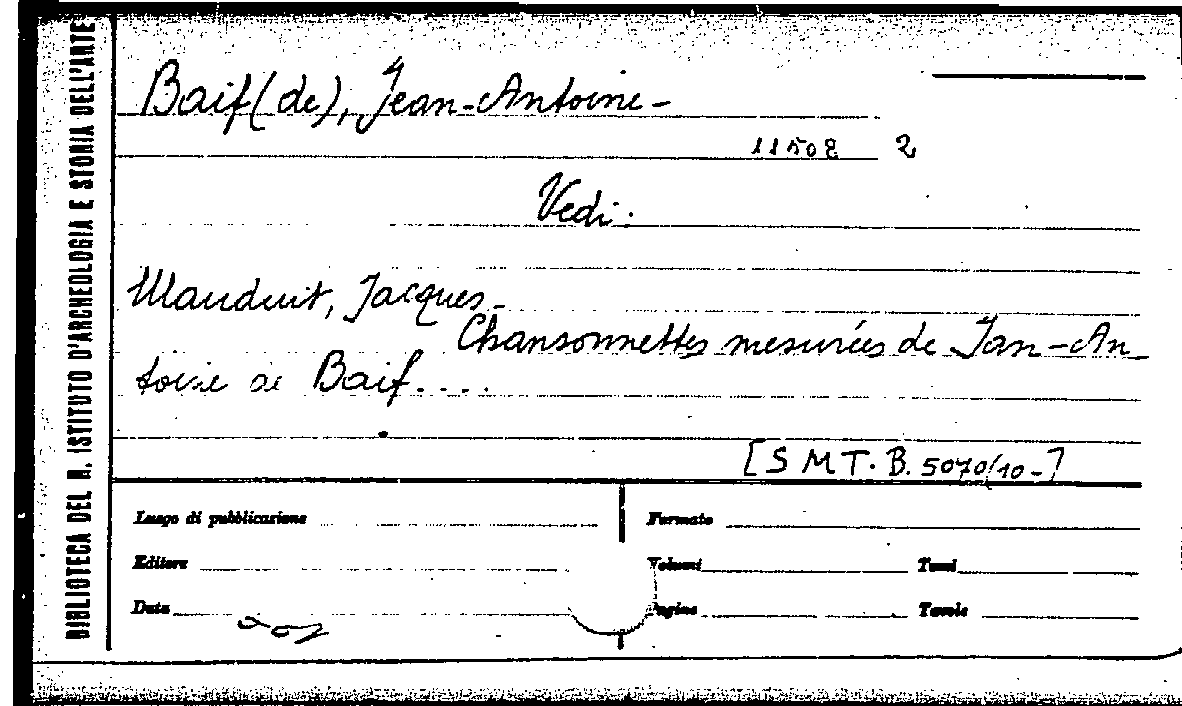 BIBLIOTECA DEL R. ISTITUTO D'ARCHEOLOGIA E STORIA DELL'ARTE
Baif (de), Jean-Antoine-
11508 2
Vedi:
Mauduit, Jacques-
Chansonnettes mesurées de Jan-An-
toine de Baif....
[S M T. B. 5070/10-]
Luogo di pubblicazione
Formato
Editore
Volumi
Tomi
Data
Pagine
Tavole